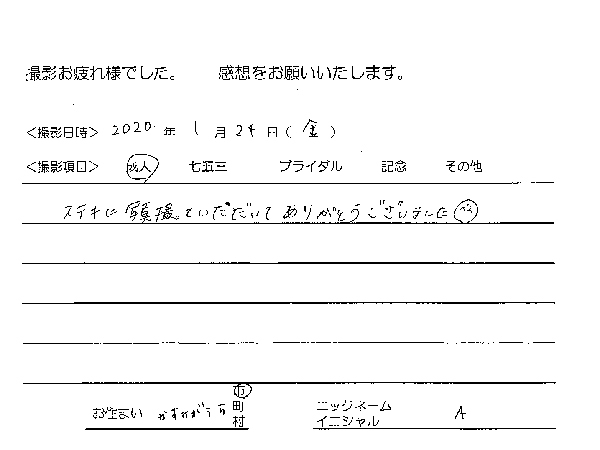 撮影お疲れ様でした。 感想をお願いいたします。
<撮影日時> 2020 年 1 月 24 日 ( 金 )
<撮影項目> 成人 七五三 ブライダル 記念 その他
ステキに していただいて ありがとうございました
お住まい かすがい 市
町
村
ニックネーム
イニシャル A